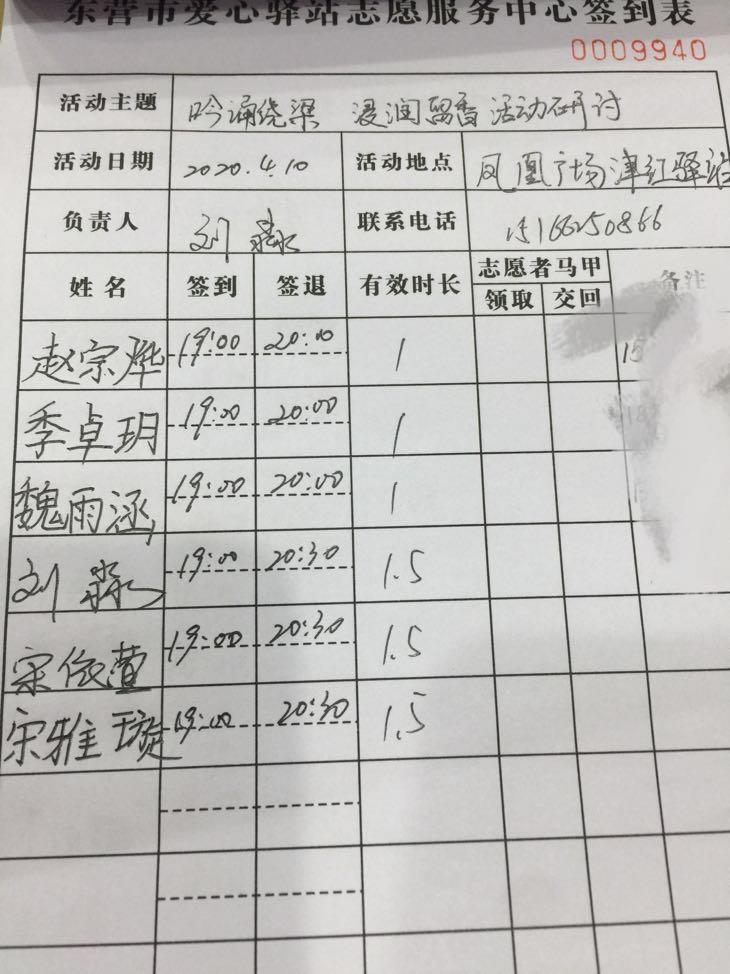 东营市爱心驿站志愿服务中心签到表
0009940
活动主题 吟诵绕梁 浸润留香 活动研讨
活动日期 2020.4.10 活动地点 凤凰广场津红驿站
负责人 刘淼 联系电话 15166250866
姓名 签到 签退 有效时长 志愿者马甲 备注
领取 交回
赵宗烨 19:00 20:00 1 15
季卓玥 19:00 20:00 1
魏雨涵 19:00 20:00 1
刘淼 19:00 20:30 1.5
宋依萱 19:00 20:30 1.5
宋雅璇 19:00 20:30 1.5